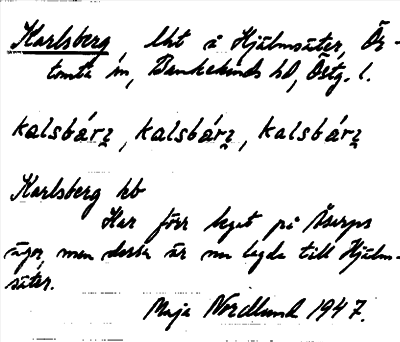 Karlsberg, lht å Hjälmsäter, Ör-
tomta sn, Bankekinds hd, Östg. l.
kalsbárʐ, kalsbárʐ, kalsbárʐ
Karlsberg hb
Har förr legat på Åserps
ägor, men dessa är nu lagda till Hjälm-
säter.
Maja Nordlund 1947.